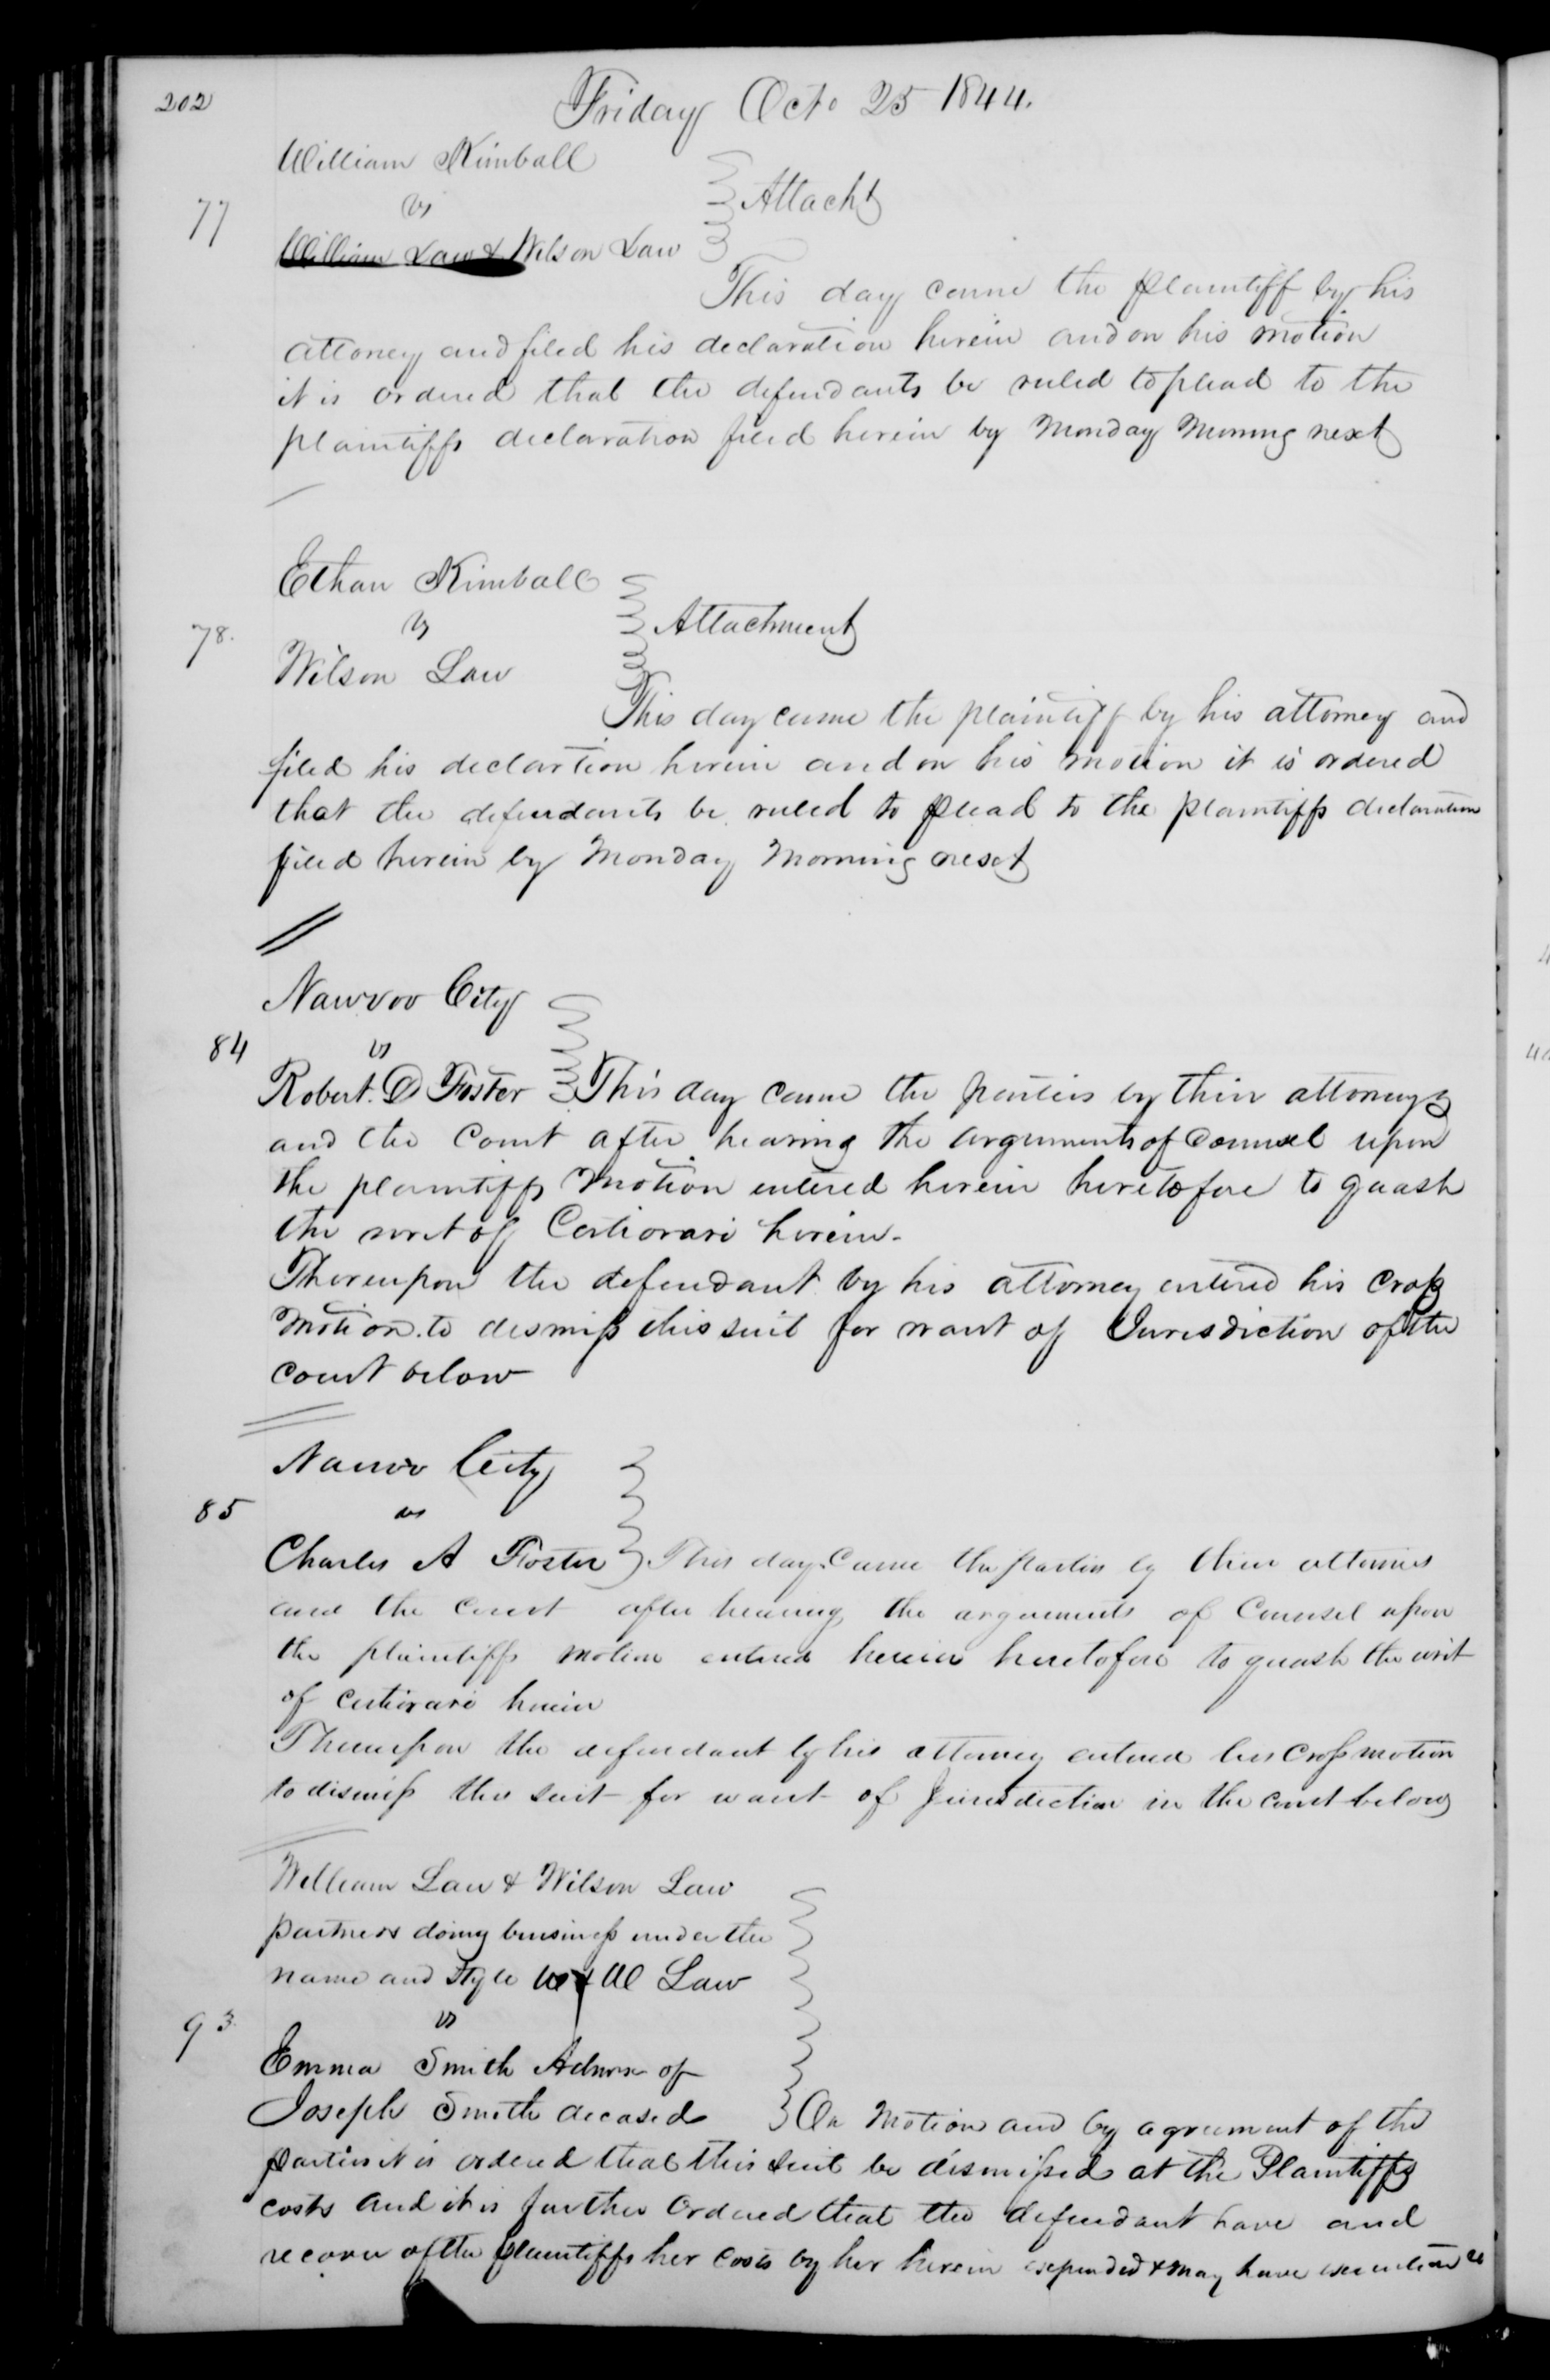 202
Friday Oct. 25 1844.
William Kimball
77 vs Attacht
William Law & Wilson Law
This day came the plaintiff by his
attorney and filed his declaration herein and on his motion
it is ordered that the defendants be ruled to plead to the
plaintiffs declaration filed herein by Monday Morning next
Ethan Kimball
78. vs Attachment
Wilson Law
This day came the plaintiff by his attorney and
filed his declartion herein and on his motion it is ordered
that the defendants be ruled to plead to the plaintiffs declaration
filed herein by Monday Morning next
Nauvoo City
84 vs
Robert. D Foster This day came the parties by their attorneys
and the Court after hearing the arguments of Counsel upon
the plaintiffs Motion entered herein heretofore to quash
the writ of Certiorari herein.
Thereupon the defendant by his attorney entered his cross
Motion to dismiss this suit for want of Jurisdiction of the
court below
Nauvoo City
85 vs
Charles A Foster This day Came the parties by their attornies
and the court after hearing the arguments of Counsel upon
the plaintiffs motion entered herein heretofore to quash the writ
of certiorari herein
Thereupon the defendant by his attorney entered his cross motion
to dismiss this suit for want of Jurisdiction in the court below
William Law & Wilson Law
partners doing business under the
name and style W & W Law
93. vs
Emma Smith Admrx of
Joseph Smith decased On Motion and by agreement of the
parties it is ordered that this suit be dismissed at the Plaintiffs
costs and it is further Ordered that the defendant have and
recover of the plaintiffs her costs by her herein expended & may have execution &c